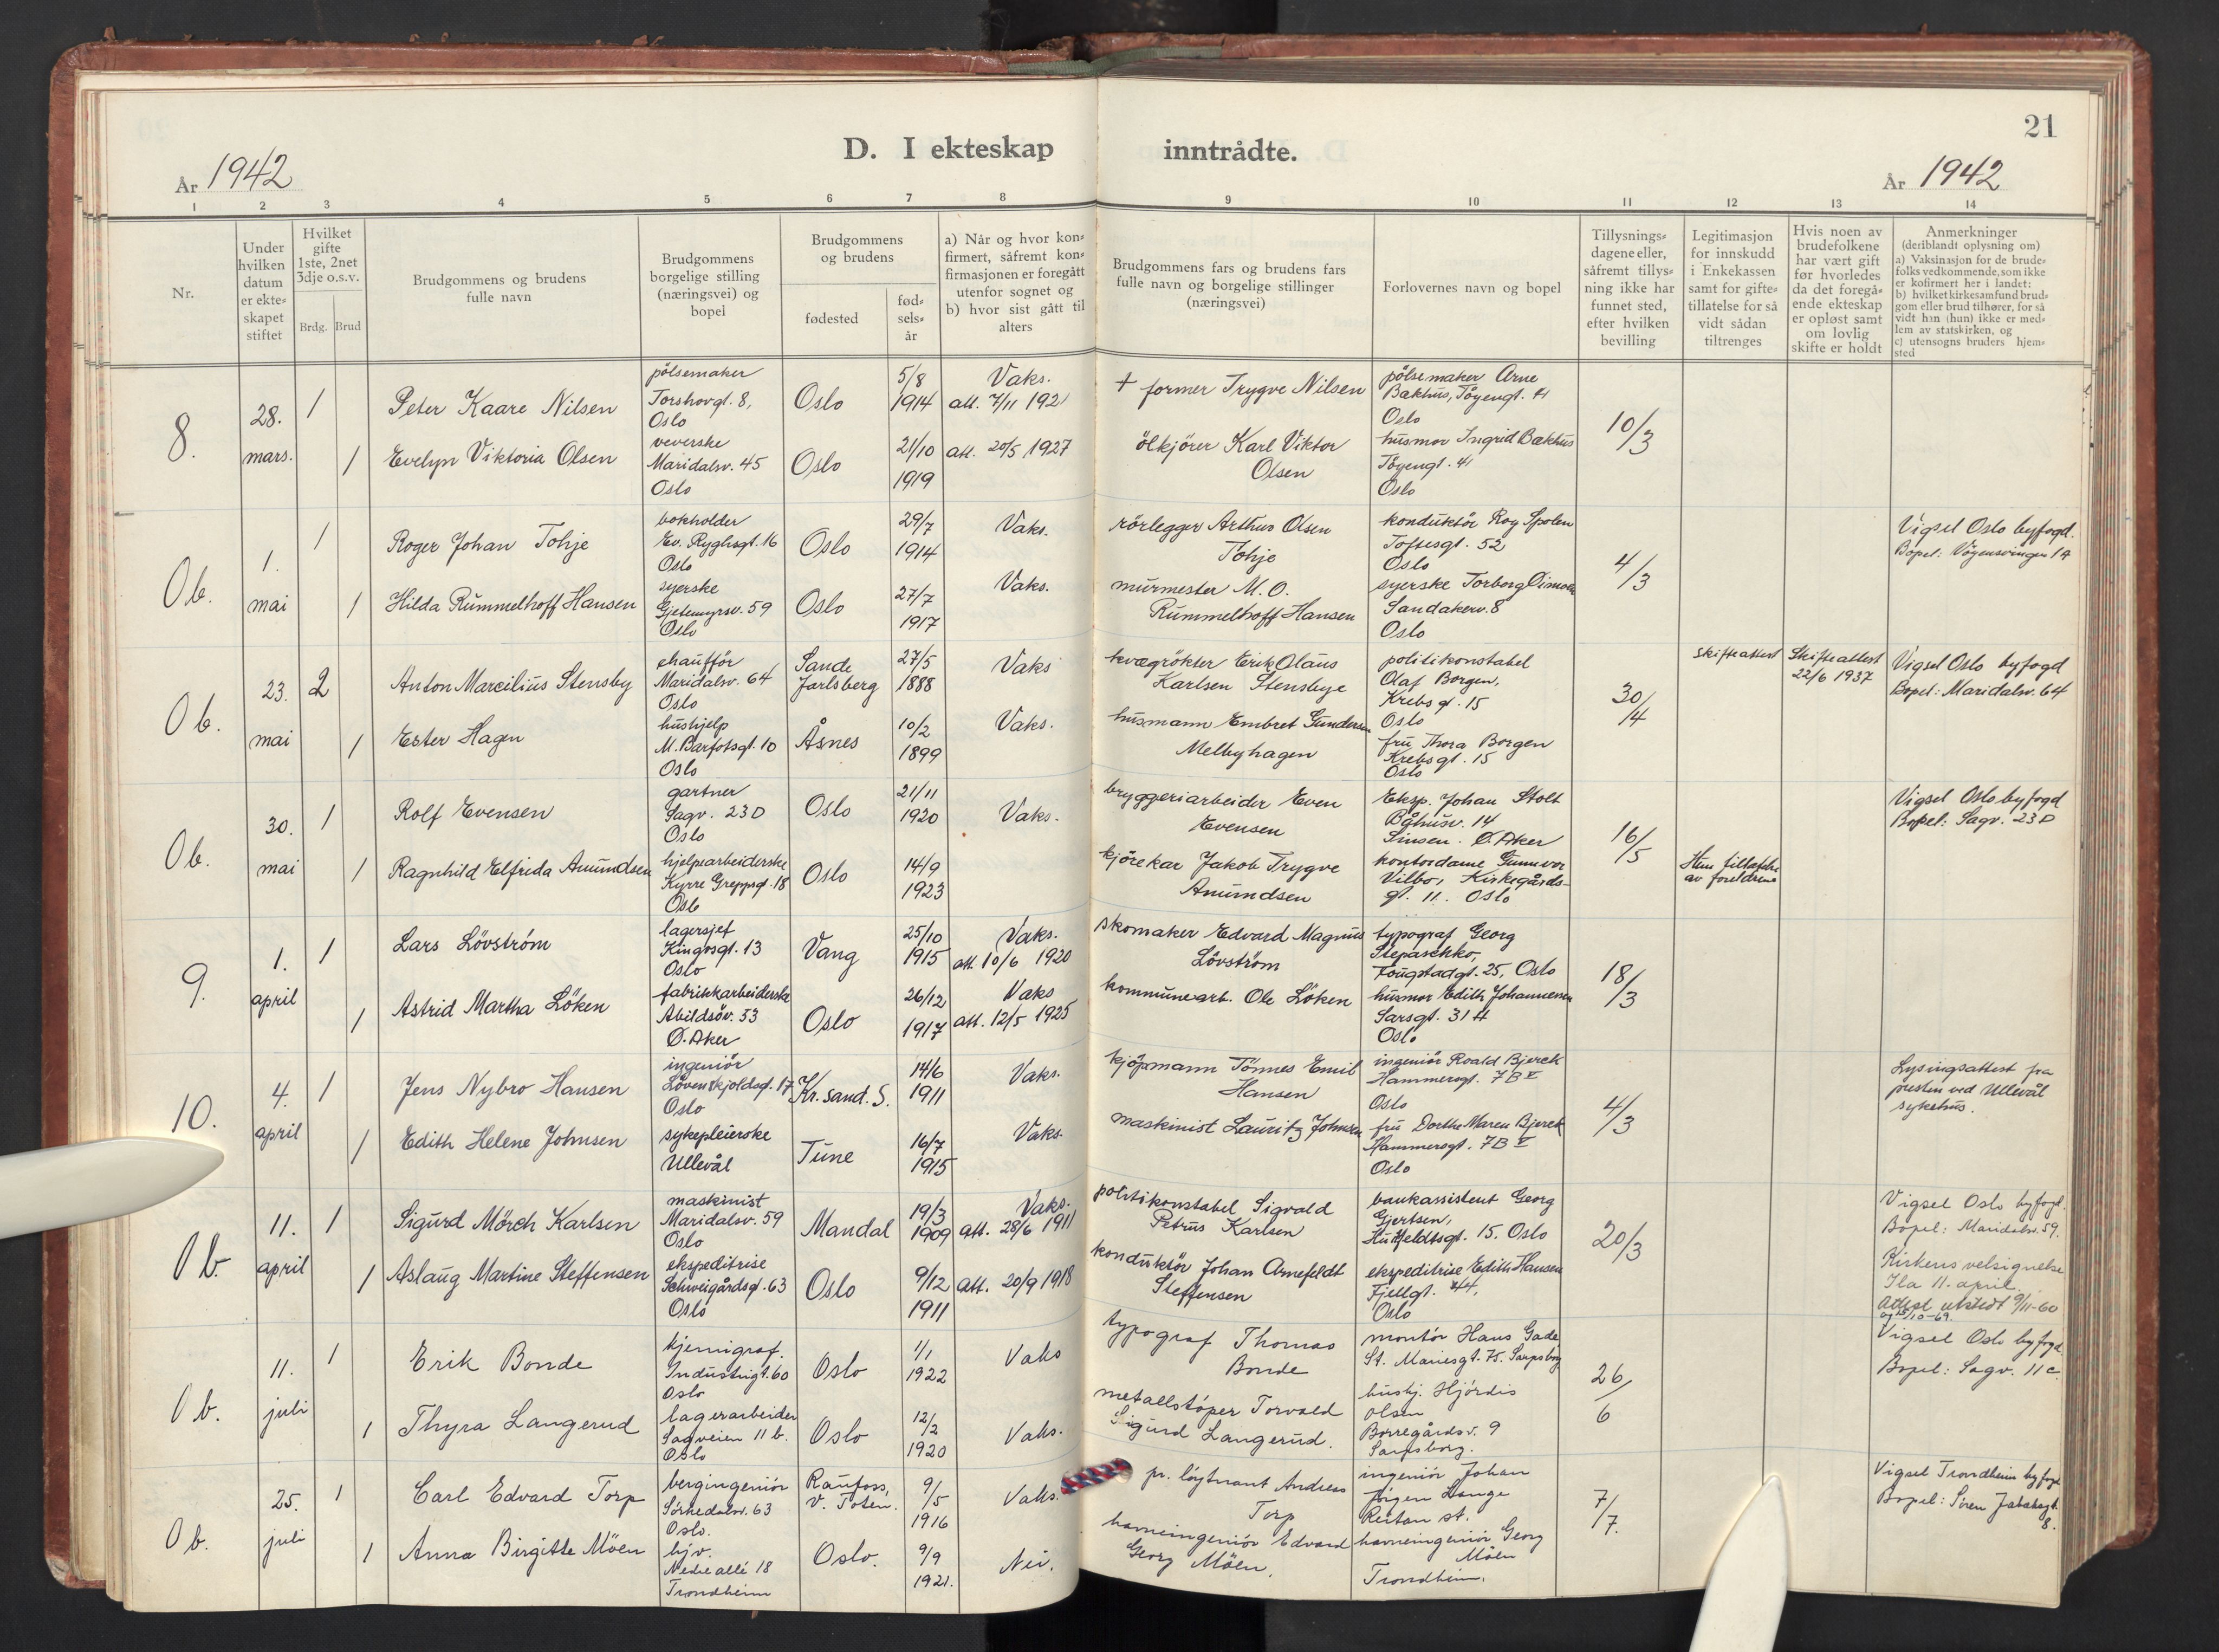 21
D. I ekteskap inntrådte.
År 1942
År 1942
1 2 3 4 5 6 7 8 9 10 11 12 13 14
Nr.
Under
hvilken
datum
er ekte-
skapet
stiftet
Hvilket
gifte
1ste, 2net
3dje o.s.v.
Brdg. Brud
Brudgommens og brudens
fulle navn
Brudgommens
borgelige stilling
(næringsvei) og
bopel
Brudgommens
og brudens
fødested
fød-
sels-
år
a) Når og hvor kon-
firmert, såfremt kon-
firmasjonen er foregått
utenfor sognet og
b) hvor sist gått til
alters
Brudgommens fars og brudens fars
fulle navn og borgelige stillinger
(næringsvei)
Forlovernes navn og bopel
Tillysnings-
dagene eller,
såfremt tillys-
ning ikke har
funnet sted,
efter hvilken
bevilling
Legitimasjon
for innskudd
i Enkekassen
samt for gifte-
tillatelse for så
vidt sådan
tiltrenges
Hvis noen av
brudefolkene
har vært gift
før hvorledes
da det foregå-
ende ekteskap
er opløst samt
om lovlig
skifte er holdt
Anmerkninger
(deriblandt oplysning om)
a) Vaksinasjon for de brude-
folks vedkommende, som ikke
er kofirmert her i landet;
b) hvilket kirkesamfund brud-
gom eller brud tilhører, for så
vidt han (hun) ikke er med-
lem av statskirken, og
c) utensogns bruders hjem-
sted
8.
28.
mars.
1
Peter Kaare Nilsen
pølsemaker
Torshovgt. 8,
Oslo
Oslo
5/8
1914
Vaks.
att. 7/11 1921
+ former Trygve Nilsen
pølsemaker Arne
Bakhus, Tøyengt. 41
Oslo
10/3
1
Evelyn Viktoria Olsen
veverske
Maridalsv. 45
Oslo
Oslo
21/10
1919
att. 20/5 1927
ölkjörer Karl Viktor
Olsen
husmor Ingrid Bakhus
Töyengt. 41
Oslo
Ob.
1.
mai
1
Roger Johan Tohje
bokholder
Ev. Ryghsgt. 16
Oslo
Oslo
29/7
1914
Vaks.
rörlegger Arthur Olsen
Tohje
konduktör Roy Spolen
Toftesgt. 52
Oslo
4/3
Vigsel Oslo byfogd.
Bopel: Vøyensvingen 14
1
Hilda Rummelhoff Hansen
syerske
Gjetemyrsv. 59
Oslo
Oslo
27/7
1917
Vaks.
murmester M. O.
Rummelhoff Hansen
syerske Torborg
Sandakerv. 8
Oslo
Ob.
23.
mai
2
Anton Marcilius Stensby
chaufför
Maridalsv. 64
Oslo
Sande
Jarlsberg
27/5
1888
Vaks
kvægrökter Erik Olaus
Karlsen Stensbye
politikonstabel
Olaf Borgen,
Krebs gt. 15
Oslo
30/4
skifteattest
Skifteattest
22/6 1937
Vigsel Oslo byfogd
Bopel: Maridalsv. 64
1
Ester Hagen
hushjelp
M. Barfotsgt. 10
Oslo
Åsnes
10/2
1899
Vaks.
husmann Embret Gundersen
Melbyhagen
fru Thora Borgen
Krebsgt. 15
Oslo
Ob.
30.
mai
1
Rolf Evensen
gartner
Sagv. 23 D
Oslo
Oslo
21/11
1920
Vaks.
bryggeriarbeider Even
Evensen
Eksp. Johan Stolt
Båhusv. 14
Sinsen. Ø. Aker
16/5
Vigsel Oslo byfogd
Bopel: Sagv. 23 D
1
Ragnhild Elfrida Amundsen
hjelpearbeiderske
Kyrre Greppsgt. 18
Oslo
Oslo
14/9
1923
kjörekar Jakob Trygve
Amundsen
kontordame Gunnvor
Vilbo, Kirkegårds-
gt. 11. Oslo
av foreldrene
9.
1.
april
1
Lars Lövström
lagersjef
Kingosgt. 13
Oslo
Vang
25/10
1915
Vaks.
att. 10/6 1920
skomaker Edvard Magnus
Lövström
typograf Georg
Stepaschko,
Fougstadgt. 25, Oslo
18/3
1
Astrid Martha Löken
fabrikkarbeiderske
Abildsöv. 33
Ø. Aker
Oslo
26/12
1917
Vaks
att. 12/5 1925
kommunearb. Ole Löken
husmor Edith Johannesen
Sarsgt. 31 H
Oslo
10.
4.
april
1
Jens Nybro Hansen
ingeniör
Lövenskjoldsgt. 17
Oslo
Kr.sand. S.
14/6
1911
Vaks.
kjöpmann Tönnes Emil
Hansen
ingeniör Roald Bjerck
Hammersgt. 7 B V
Oslo
4/3
Lysingsattest fra
presten ved Ullevål
sykehus.
1
Edith Helene Johnsen
sykepleierske
Ullevål
Tune
16/7
1915
Vaks.
maskinist Lauritz Johnsen
fru Dorthe Maren Bjerck
Hammersgt. 7B V
Oslo
Ob.
11.
april
1
Sigurd Mörch Karlsen
maskinist
Maridalsv. 59
Oslo
Mandal
19/3
1909
Vaks.
att. 28/6 1911
politikonstabel Sigvald
Petrus Karlsen
bankassistent Georg
Gjertsen,
Huitfeldtsgt. 15. Oslo
20/3
Vigsel Oslo byfogd.
Bopel: Maridalsv. 59.
1
Aslaug Martine Steffensen
ekspeditrise
Schweigårdsgt. 63
Oslo
Oslo
9/12
1911
att. 20/9 1918
konduktör Johan Arnefeldt
Steffensen
ekspeditrise Edith Hansen
Fjellgt. 44,
Oslo
Kirkens velsignelse
Ila 11. april.
Attest utstedt 9/11-60
Ob.
11.
juli
1
Erik Bonde
kjemigraf.
Industrigt. 60
Oslo
Oslo
1/1
1922
Vaks
typograf Thomas
Bonde
montör Hans Gade
St. Mariesgt. 75. Sarpsborg
26/6
Vigsel Oslo byfogd.
Bopel: Sagv. 11 c
1
Thyra Langerud
lagerarbeider
Sagveien 11 b.
Oslo
Oslo
12/2
1920
Vaks.
metallstöper Torvald
Sigurd Langerud.
hushj. Hjördis
Olsen
Borregårdsv. 9
Sarpsborg.
Ob.
25.
juli
1
Carl Edvard Torp
bergingeniör
Sörkedalsv. 63
Oslo.
Raufoss,
V. Toten.
9/5
1916
Vaks.
pr. löytnant Andreas
Torp
ingeniör Johan
Jörgen Lange
Reitan st.
7/7.
Vigsel Trondheim byfogd
Bopel: Sören Jaabaksgt.
8.
1
Anna Birgitte Möen
hjv.
Nedre allé 18
Trondheim
Oslo.
9/9
1921.
Nei.
havneingeniör Edvard
Georg Möen.
havneingeniör Georg
Möen
Trondheim.